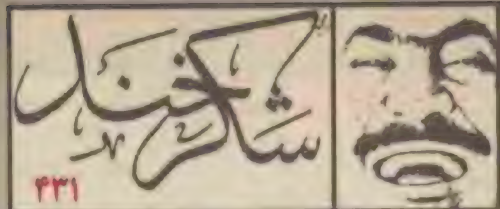 شکرخند
۴۳۱